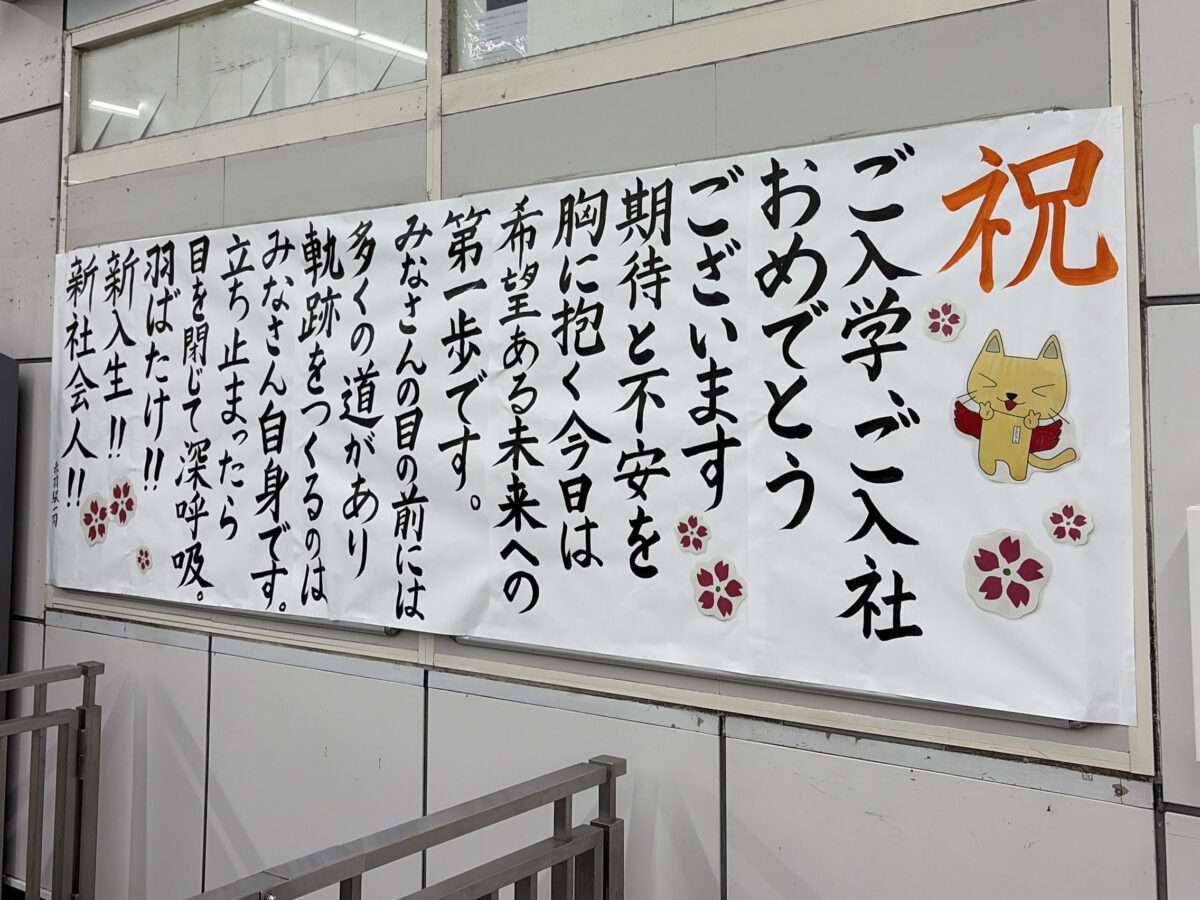 祝
ご入学、ご入社
おめでとう
ございます
期待と不安を
胸に抱く今日は
希望ある未来への
第一歩です。
みなさんの目の前には
多くの道があり
軌跡をつくるのは
みなさん自身です。
立ち止まったら
目を閉じて深呼吸。
羽ばたけ!!
新入生!!
新社会人!!
赤羽駅一同